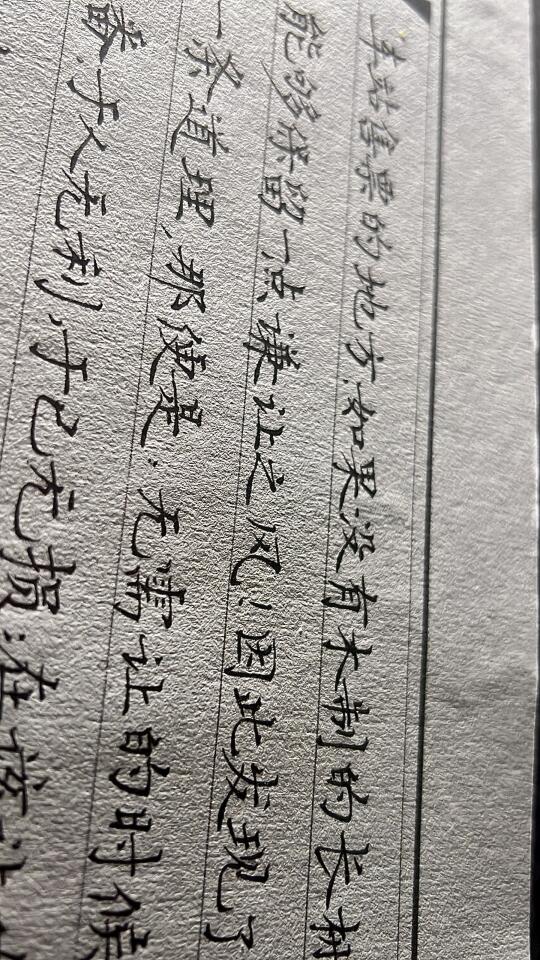 车站售票的地方,如果没有木制的长
能够保留一点谦让之风!因此发现了
一条道理,那便是:无需让的时候
番.于人无利,于己无损;在